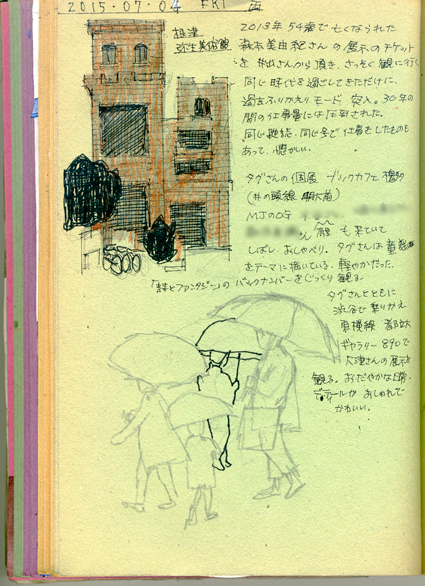 2015.07.04 FRI 雨
根津
弥生美術館
2013年 54歳で亡くなられた
森本美由紀さんの展示のチケット
を 松山さんから頂き、さっそく観に行く
同じ時代を過ごしてきただけに、
過去ふりかえりモード 突入。30年の
間の仕事量には圧倒された。
同じ雑誌、同じ号で仕事をしたものも
あって、懐かしい。
タグさんの個展 ブックカフェ 槐多
(井の頭線 明大前)
MJのOG
さん も来ていて
しばし おしゃべり。タグさんは
をテーマに描いている。軽やかだった。
「詩とファンタジー」の バックナンバーを じっくり 観る。
タグさんとともに
渋谷で乗りかえ
東横線 都立大
ギャラリー 890で
大津さんの展示を
観る。おだやかな日常。
ディテールが おしゃれで
かわいい。